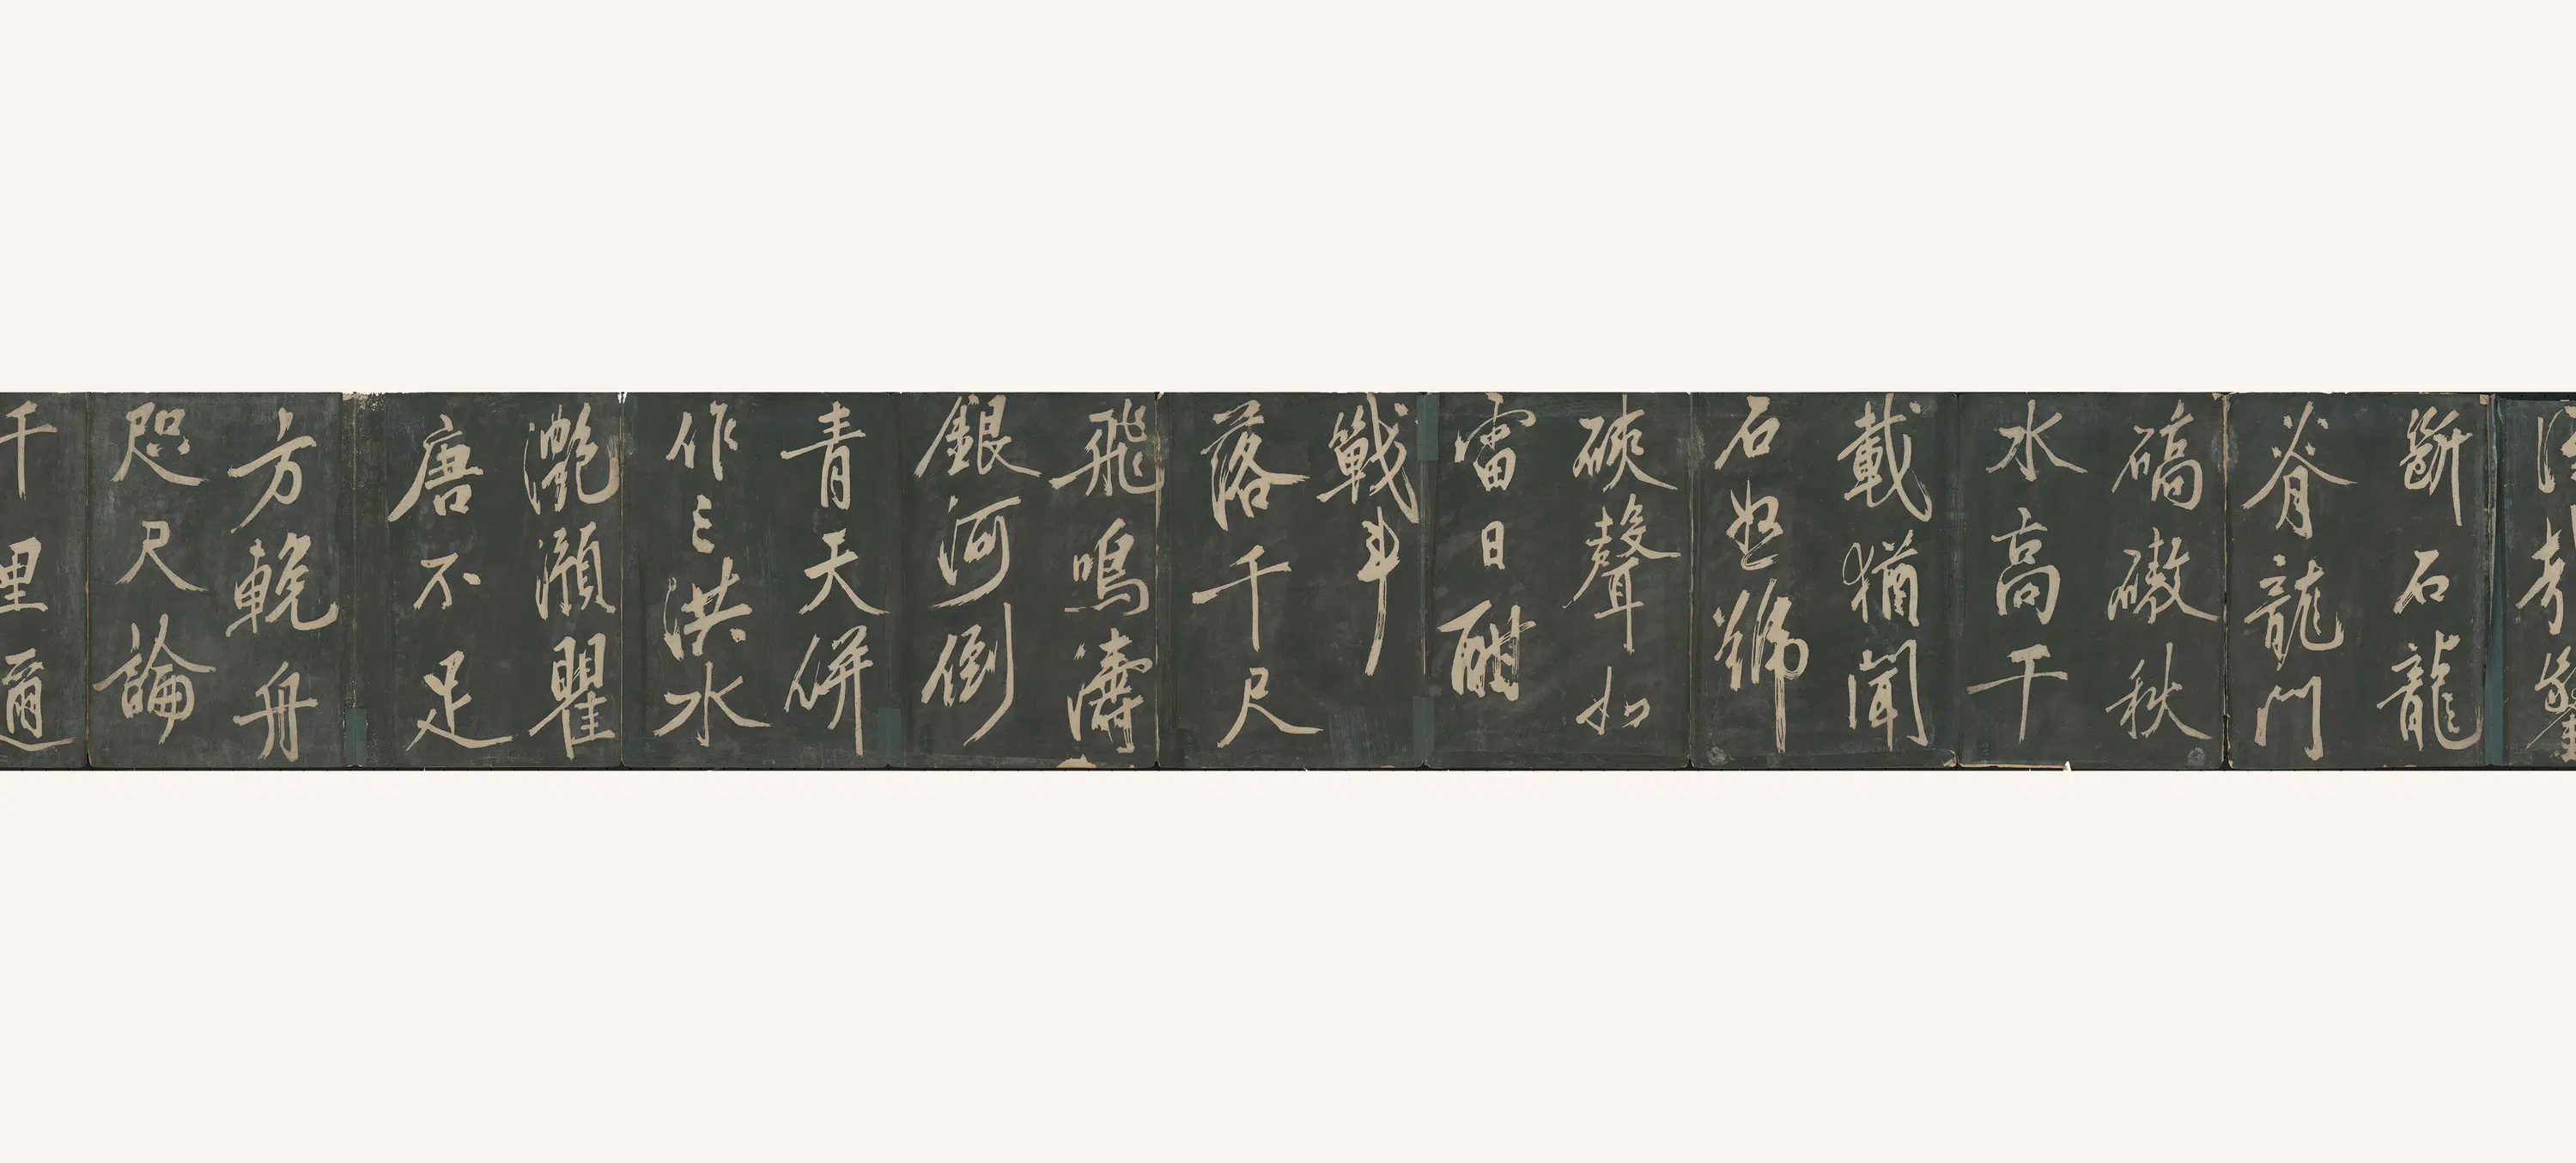 斷石龍
脊龍門
碻磝秋
水高干
載猶聞
石怒號
硤聲如
雷日酣
戰斗
落千尺
飛鳴濤
銀河倒
青天併
作三洪水
灔澦瞿
唐不足
方輓舟
咫尺論
千里邇